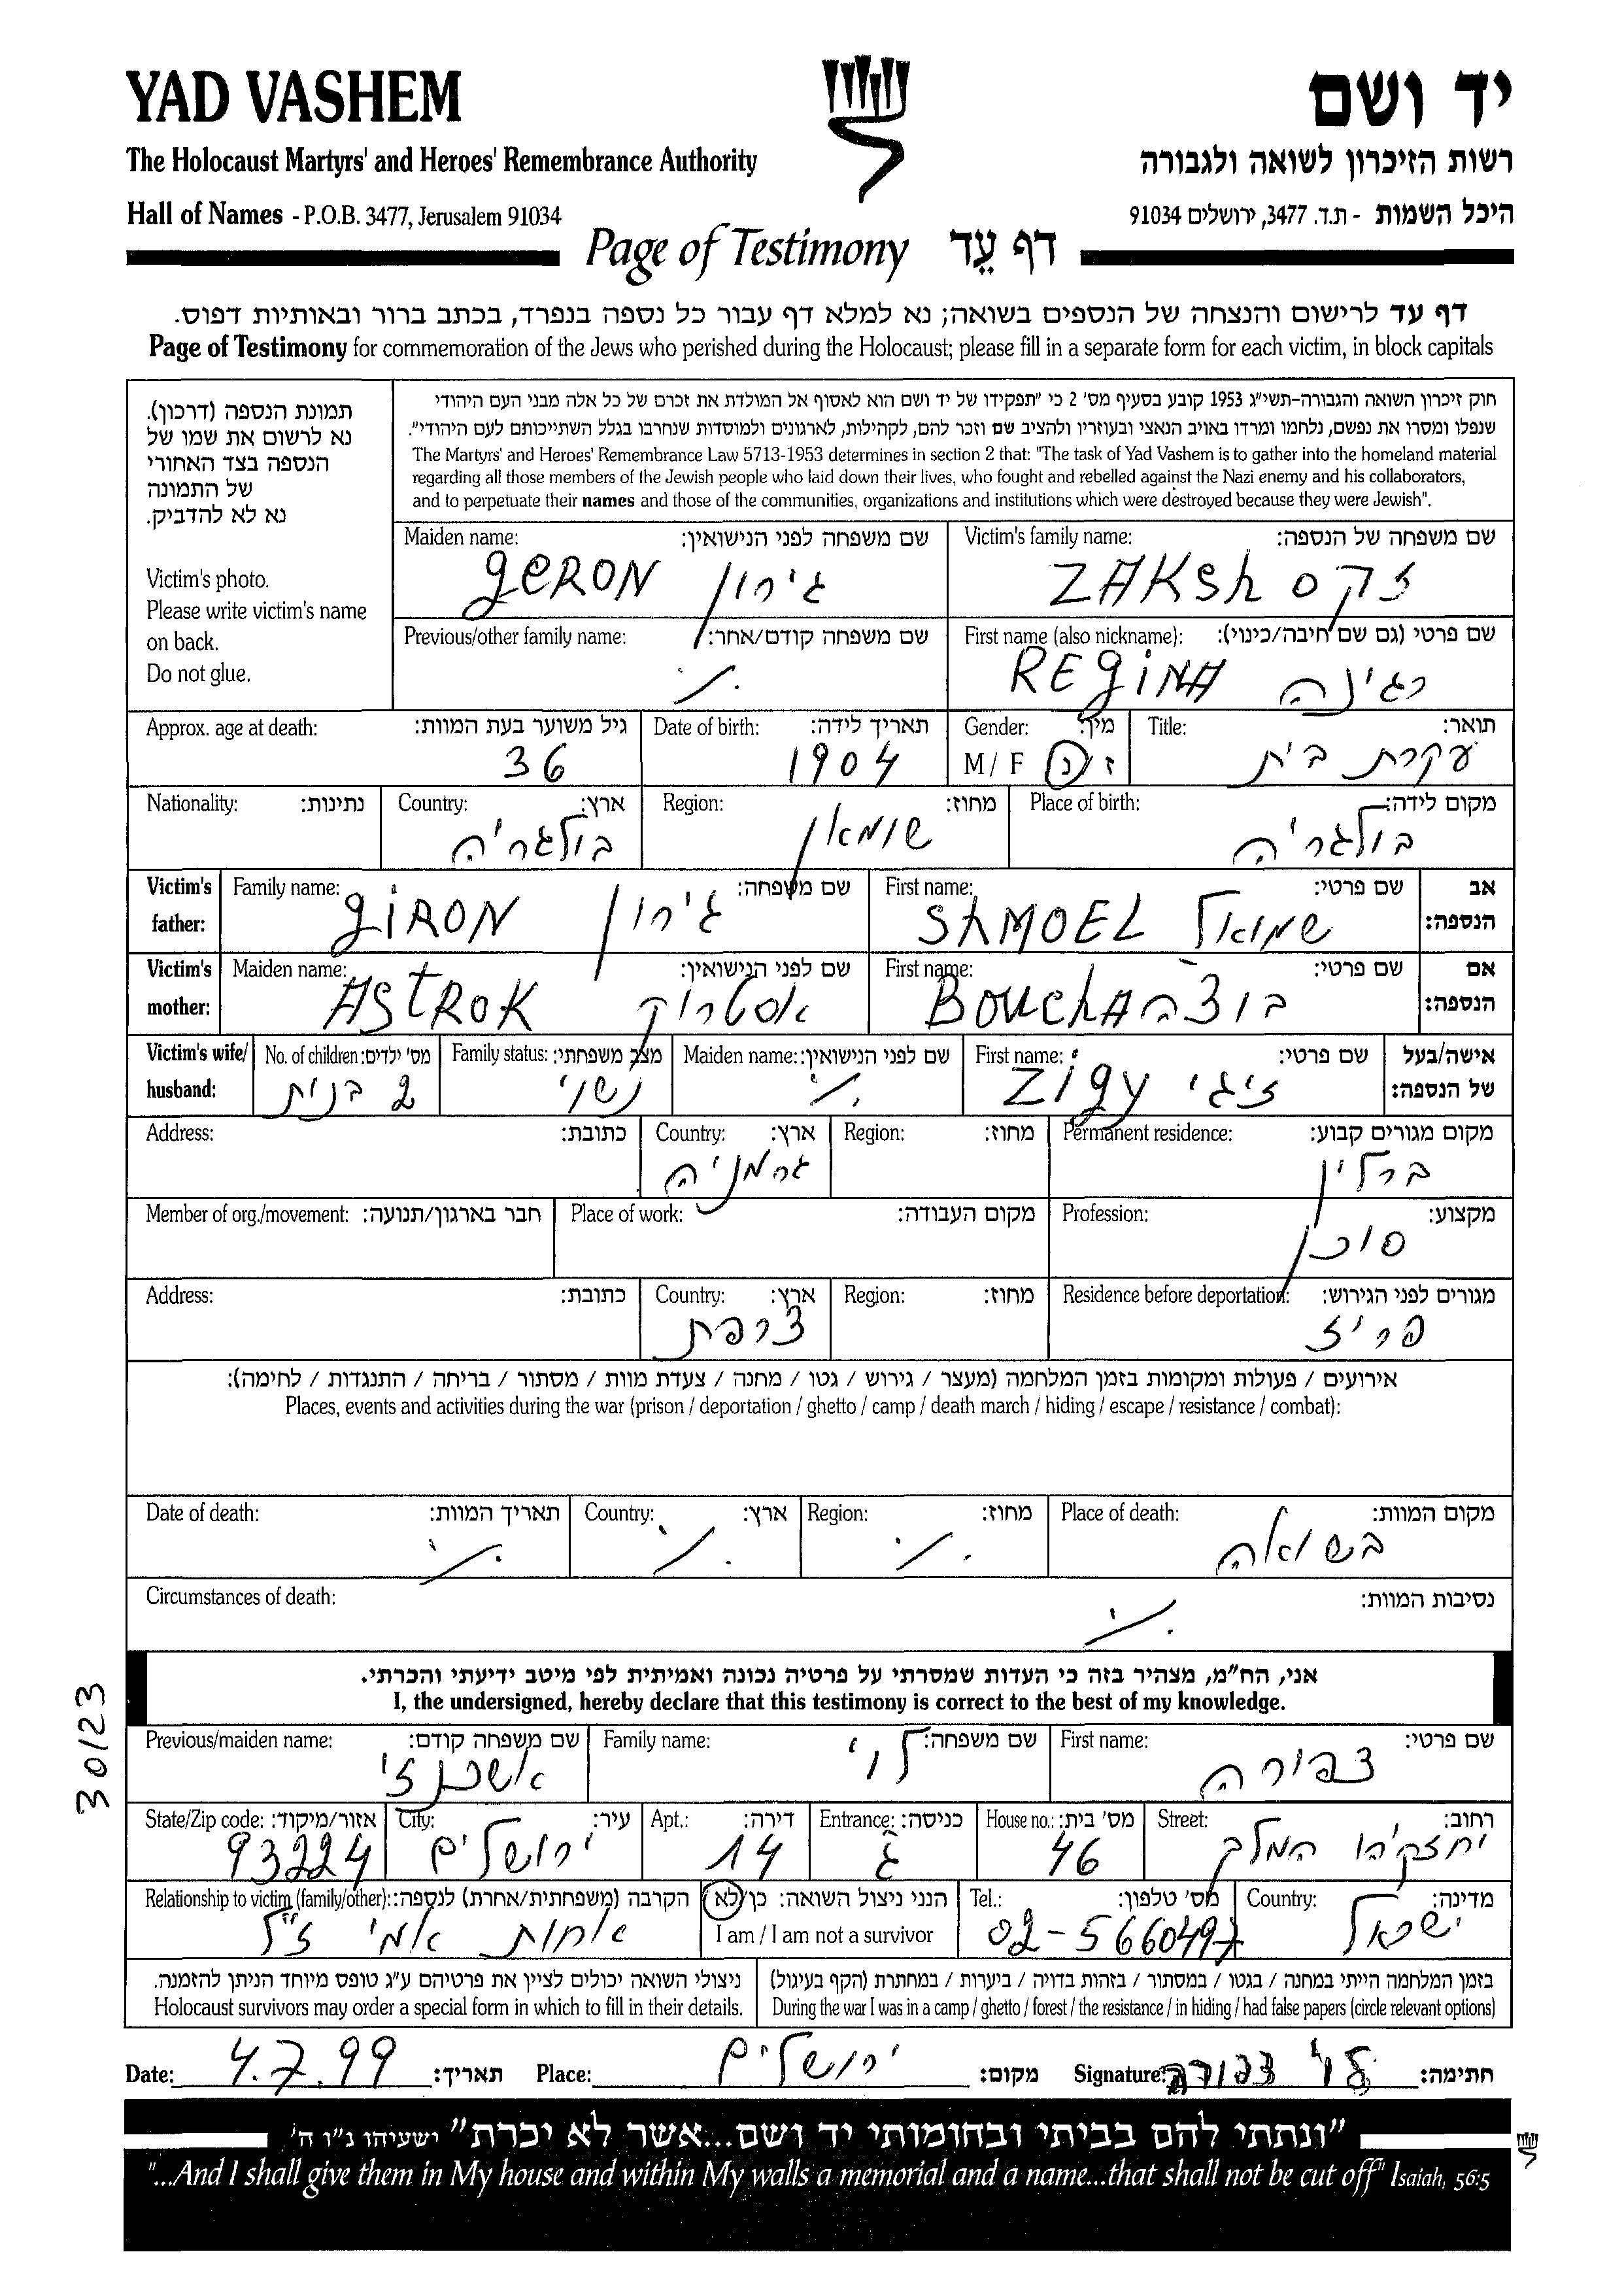 YAD VASHEM
יד ושם
The Holocaust Martyrs' and Heroes' Remembrance Authority
רשות הזיכרון לשואה ולגבורה
Hall of Names - P.O.B. 3477, Jerusalem 91034
היכל השמות - ת.ד. 3477, ירושלים 91034
Page of Testimony דף עֵד
דף עד לרישום והנצחה של הנספים בשואה; נא למלא דף עבור כל נספה בנפרד, בכתב ברור ובאותיות דפוס.
Page of Testimony for commemoration of the Jews who perished during the Holocaust; please fill in a separate form for each victim, in block capitals
תמונת הנספה (דרכון).
נא לרשום את שמו של
הנספה בצד האחורי
של התמונה
נא לא להדביק.
Victim's photo.
Please write victim's name
on back.
Do not glue.
חוק זיכרון השואה והגבורה-תשי"ג 1953 קובע בסעיף מס' 2 כי "תפקידו של יד ושם הוא לאסוף אל המולדת את זכרם של כל אלה מבני העם היהודי
שנפלו ומסרו את נפשם, נלחמו ומרדו באויב הנאצי ובעוזריו ולהציב שם וזכר להם, לקהילות, לארגונים ולמוסדות שנחרבו בגלל השתייכותם לעם היהודי".
The Martyrs' and Heroes' Remembrance Law 5713-1953 determines in section 2 that: "The task of Yad Vashem is to gather into the homeland material
regarding all those members of the Jewish people who laid down their lives, who fought and rebelled against the Nazi enemy and his collaborators,
and to perpetuate their names and those of the communities, organizations and institutions which were destroyed because they were Jewish".
Victim's family name: שם משפחה של הנספה:
ZAKSh זקס
Maiden name: שם משפחה לפני הנישואין:
GERON גירון
First name (also nickname): שם פרטי (גם שם חיבה/כינוי):
REGiNA רגינה
Previous/other family name: שם משפחה קודם/אחר:
./.
Title: תואר:
עקרת בית
Gender: מין:
M / F ז / נ
Date of birth: תאריך לידה:
1904
Approx. age at death: גיל משוער בעת המוות:
36
Place of birth: מקום לידה:
בולגריה
Region: מחוז:
שומאן
Country: ארץ:
בולגריה
Nationality: נתינות:
Victim's father: אב הנספה:
First name: שם פרטי:
SHMOEL שמואל
Family name: שם משפחה:
GiRON גירון
Victim's mother: אם הנספה:
First name: שם פרטי:
BOUCHA בוצה
Maiden name: שם לפני הנישואין:
ASTROK אסטרוק
Victim's wife/husband: אישה/בעל של הנספה:
First name: שם פרטי:
Zigy זיגי
Maiden name: שם לפני הנישואין:
./.
Family status: מצב משפחתי:
נשוי
No. of children: מס' ילדים:
2 בנות
Permanent residence: מקום מגורים קבוע:
ברלין
Region: מחוז:
Country: ארץ:
גרמניה
Address: כתובת:
Profession: מקצוע:
סוכן
Place of work: מקום העבודה:
Member of org./movement: חבר בארגון/תנועה:
Residence before deportation: מגורים לפני הגירוש:
פריז
Region: מחוז:
Country: ארץ:
צרפת
Address: כתובת:
אירועים / פעולות ומקומות בזמן המלחמה (מעצר / גירוש / גטו / מחנה / צעדת מוות / מסתור / בריחה / התנגדות / לחימה):
Places, events and activities during the war (prison / deportation / ghetto / camp / death march / hiding / escape / resistance / combat):
Place of death: מקום המוות:
בשואה
Region: מחוז:
./.
Country: ארץ:
./.
Date of death: תאריך המוות:
./.
Circumstances of death: נסיבות המוות:
./.
אני, הח"מ, מצהיר בזה כי העדות שמסרתי על פרטיה נכונה ואמיתית לפי מיטב ידיעתי והכרתי.
I, the undersigned, hereby declare that this testimony is correct to the best of my knowledge.
30/23
First name: שם פרטי:
צפורה
Family name: שם משפחה:
לוי
Previous/maiden name: שם משפחה קודם:
אשכנזי
Street: רחוב:
יחזקיהו המלך
House no.: מס' בית:
46
Entrance: כניסה:
ג
Apt.: דירה:
14
City: עיר:
ירושלים
State/Zip code: אזור/מיקוד:
93224
Country: מדינה:
ישראל
Tel.: מס' טלפון:
02-5660497
הנני ניצול השואה: כן/לא
I am / I am not a survivor
Relationship to victim (family/other): הקרבה (משפחתית/אחרת) לנספה:
אחות אמי ז"ל
בזמן המלחמה הייתי במחנה / בגטו / במסתור / בזהות בדויה / ביערות / במחתרת (הקף בעיגול)
During the war I was in a camp / ghetto / forest / the resistance / in hiding / had false papers (circle relevant options)
ניצולי השואה יכולים לציין את פרטיהם ע"ג טופס מיוחד הניתן להזמנה.
Holocaust survivors may order a special form in which to fill in their details.
Date: 4.7.99 תאריך: Place: ירושלים מקום: Signature: לוי צפורה חתימה:
"ונתתי להם בביתי ובחומותי יד ושם...אשר לא יכרת" ישעיהו נ"ו ה'
"...And I shall give them in My house and within My walls a memorial and a name...that shall not be cut off" Isaiah, 56:5